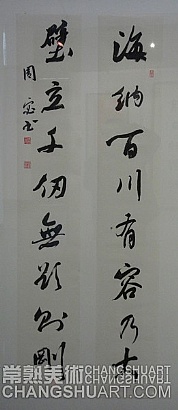 海纳百川有容乃大
壁立千仞無欲則剛
周宓书
常熟美术 CHANGSHUART
CHANGSHUART.COM